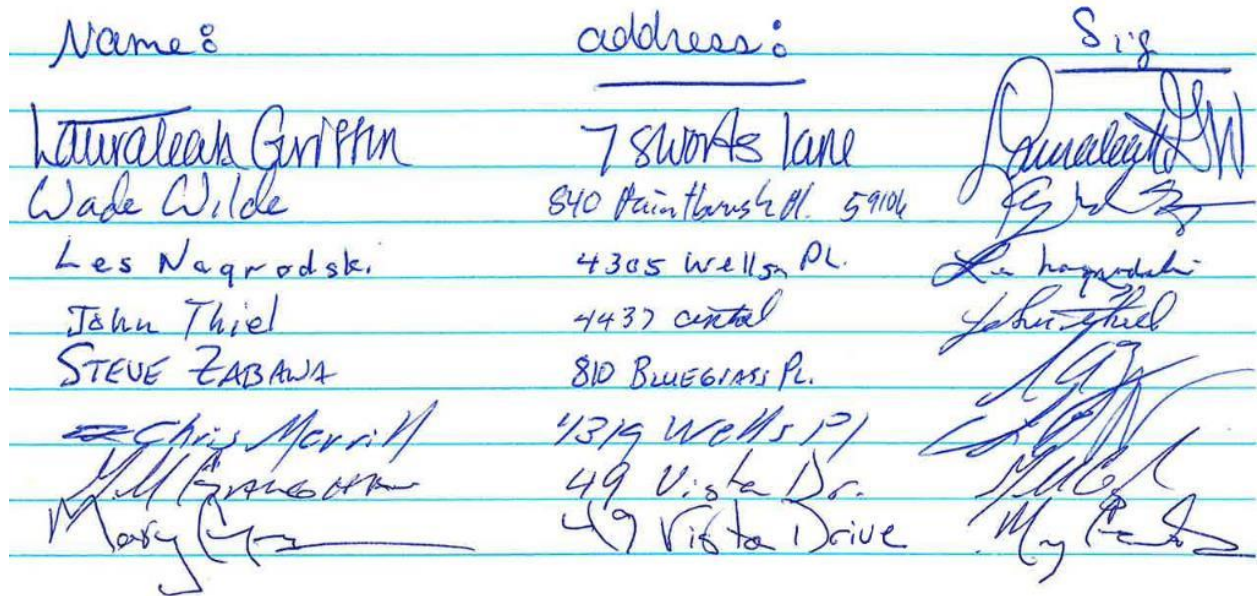 Name: address: Sig
Lauraleah Griffin 7 Swords lane Lauraleah GW
Wade Wilde 840 Paintbrush Pl. 59106
Les Nagrodski 4305 Wells Pl. Les Nagrodski
John Thiel 4437 central John Thiel
STEVE ZABAWA 810 BLUEGRASS PL.
Chris Merrill 4319 Wells Pl
49 Vista Dr.
Mary 49 Vista Drive